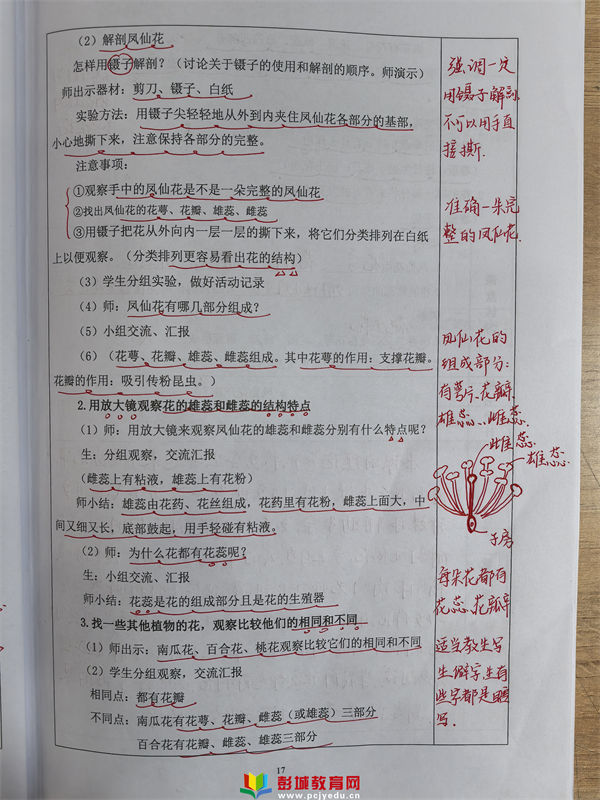 （2）解剖凤仙花
怎样用镊子解剖？（讨论关于镊子的使用和解剖的顺序。师演示）
师出示器材：剪刀、镊子、白纸
实验方法：用镊子尖轻轻地从外到内夹住凤仙花各部分的基部，
小心地撕下来，注意保持各部分的完整。
注意事项：
①观察手中的凤仙花是不是一朵完整的凤仙花
②找出凤仙花的花萼、花瓣、雄蕊、雌蕊
③用镊子把花从外向内一层一层的撕下来，将它们分类排列在白纸
上以便观察。（分类排列更容易看出花的结构）
（3）学生分组实验，做好活动记录
（4）师：凤仙花有哪几部分组成？
（5）小组交流、汇报
（6）（花萼、花瓣、雄蕊、雌蕊组成。其中花萼的作用：支撑花瓣。
花瓣的作用：吸引传粉昆虫。）
2.用放大镜观察花的雄蕊和雌蕊的结构特点
（1）师：用放大镜来观察凤仙花的雄蕊和雌蕊分别有什么特点呢？
生：分组观察，交流汇报
（雌蕊上有粘液，雄蕊上有花粉）
师小结：雄蕊由花药、花丝组成，花药里有花粉，雌蕊上面大，中
间又细又长，底部鼓起，用手轻碰有粘液。
（2）师：为什么花都有花蕊呢？
生：小组交流、汇报
师小结：花蕊是花的组成部分且是花的生殖器
3.找一些其他植物的花，观察比较他们的相同和不同
（1）师出示：南瓜花、百合花、桃花观察比较它们的相同和不同
（2）学生分组观察，交流汇报
相同点：都有花瓣
不同点：南瓜花有花萼、花瓣、雌蕊（或雄蕊）三部分
百合花有花瓣、雌蕊、雄蕊三部分
强调一定
用镊子解剖
不可以用手直
接撕.
准确一朵完
整的凤仙花.
凤仙花的
组成部分：
有萼片、花瓣、
雄蕊、雌蕊.
雌蕊.
雄蕊.
子房
每朵花都有
花蕊、花瓣
适当教生写
生僻字,生有
些字都是
写.
17
彭城教育网
www.pcjyedu.cn